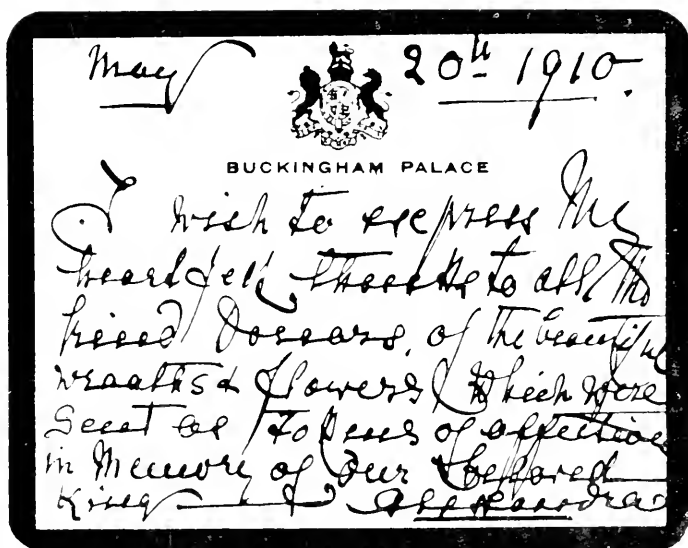 May 20th 1910.
BUCKINGHAM PALACE
I wish to express My
heartfelt thanks to all the
kind Donors, of the beautiful
wreaths & flowers which were
Sent as Tokens of affection
in Memory of Our Beloved
King Alexandra